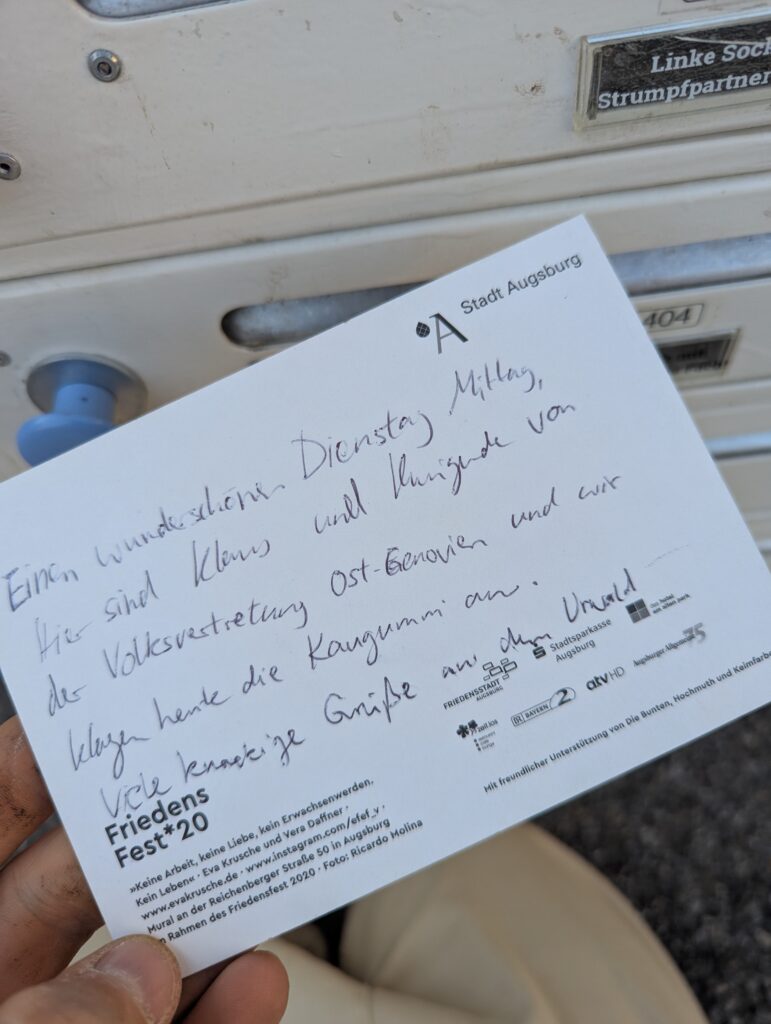 Linke Sock
Strumpfpartner
404
Stadt Augsburg
Einen wunderschönen Dienstag Mittag,
Hier sind Klaus und Kunigunde von
der Volksvertretung Ost-Genovien und wir
klagen heute die Kaugummi an.
Viele knackige Grüße aus dem Urwald
FRIEDENSSTADT
AUGSBURG
Stadtsparkasse
Augsburg
BR BAYERN 2
atv HD
Augsburger Allgemeine 75
Mit freundlicher Unterstützung von Die Bunten, Hochmuth und Keimfarbe
Friedens
Fest*20
»Keine Arbeit, keine Liebe, kein Erwachsenwerden.
Kein Leben« · Eva Krusche und Vera Daffner ·
www.evakrusche.de · www.instagram.com/efef_v ·
Mural an der Reichenberger Straße 50 in Augsburg
m Rahmen des Friedensfest 2020 · Foto: Ricardo Molina